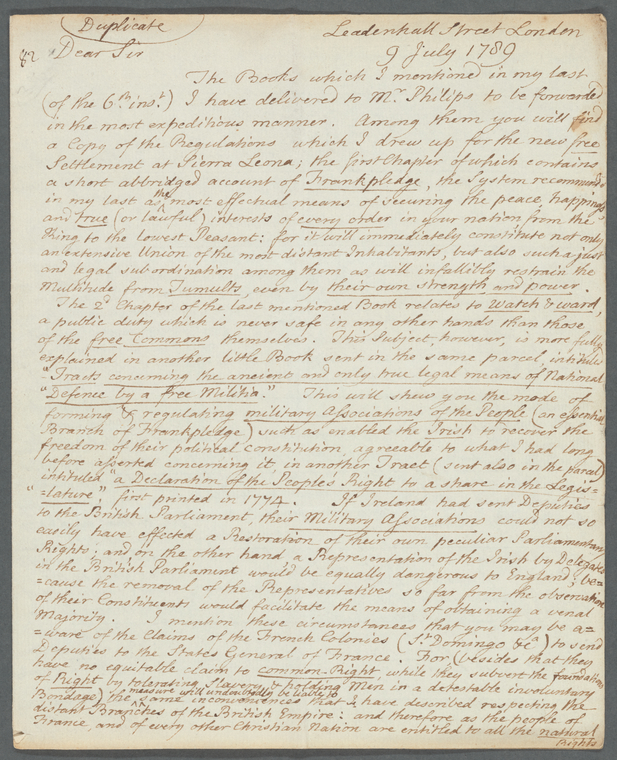 Duplicate
Leadenhall Street London
82 Dear Sir
9 July 1789
The Books which I mentioned in my last
(of the 6th inst.) I have delivered to Mr. Philips to be forwarded
in the most expeditious manner. Among them you will find
a Copy of the Regulations which I drew up for the new free
Settlement at Sierra Leona; the first Chapter of which contains
a short abbridged account of Frankpledge, the System recommended
in my last as the most effectual means of securing the peace, happiness
and true (or lawful) interests of every order in your nation from the
King to the lowest Peasant: for it will immediately constitute not only
an extensive Union of the most distant Inhabitants, but also such a just
and legal subordination among them as will infallibly restrain the
Multitude from Tumults, even by their own strength and power.
The 2d Chapter of the last mentioned Book relates to Watch & ward,
a public duty which is never safe in any other hands than those
of the free Commons themselves. This Subject, however, is more fully
explained in another little Book sent in the same parcel, intitules
"Tracts concerning the ancient and only true legal means of National
"Defence by a free Militia." This will shew you the mode of
forming & regulating military Associations of the People (an essential
Branch of Frankpledge) such as enabled the Irish to recover the
freedom of their political constitution, agreeable to what I had long
before asserted concerning it, in another Tract (sent also in the parcel)
intituled, a Declaration of the People's Right to a share in the Legis=
"=lature" first printed in 1774. If Ireland had sent Deputies
to the British Parliament, their Military Associations could not so
easily have effected a Restoration of their own peculiar Parliamentary
Rights; and on the other hand a Representation of the Irish by Delegates
in the British Parliament would be equally dangerous to England, be=
=cause the removal of the Representatives so far from the observation
of their Constituents would facilitate the means of obtaining a venal
Majority. I mention these circumstances that you may be a=
=ware of the Claims of the French Colonies (St Domingo &ca) to send
Deputies to the States General of France. For (besides that they
have no equitable claim to common-Right, while they subvert the foundation
of Right by tolerating Slavery & holding Men in a detestable involuntary
Bondage) the measure will undoubtedly be liable to
same inconveniences that I have described respecting the
distant Branches of the British Empire: and therefore as the people of
France, and of every other Christian Nation are entitled to all the natural
Rights